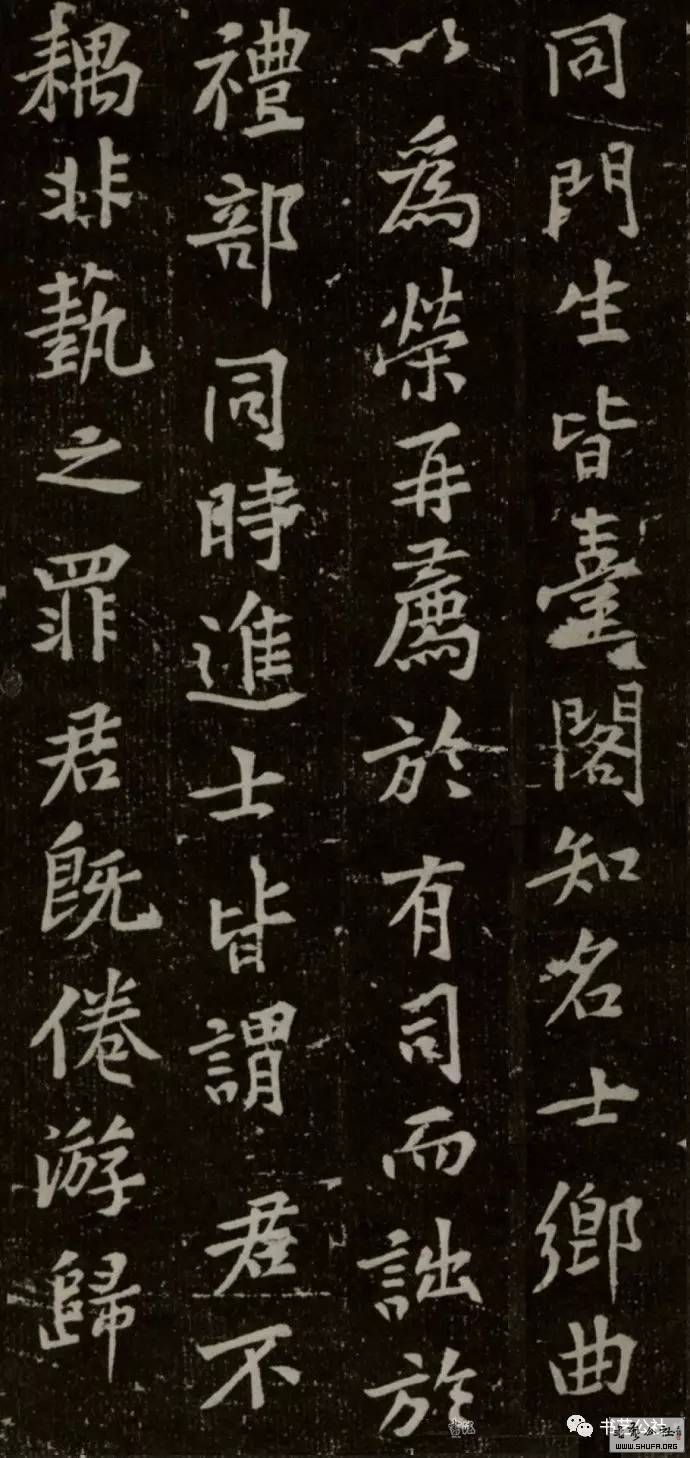 同門生皆臺閣知名士鄉曲
以為榮再薦於有司而詘於
禮部同時進士皆謂君不
耦非藝之罪君既倦游歸
书艺公社
WWW.SHUFA.ORG